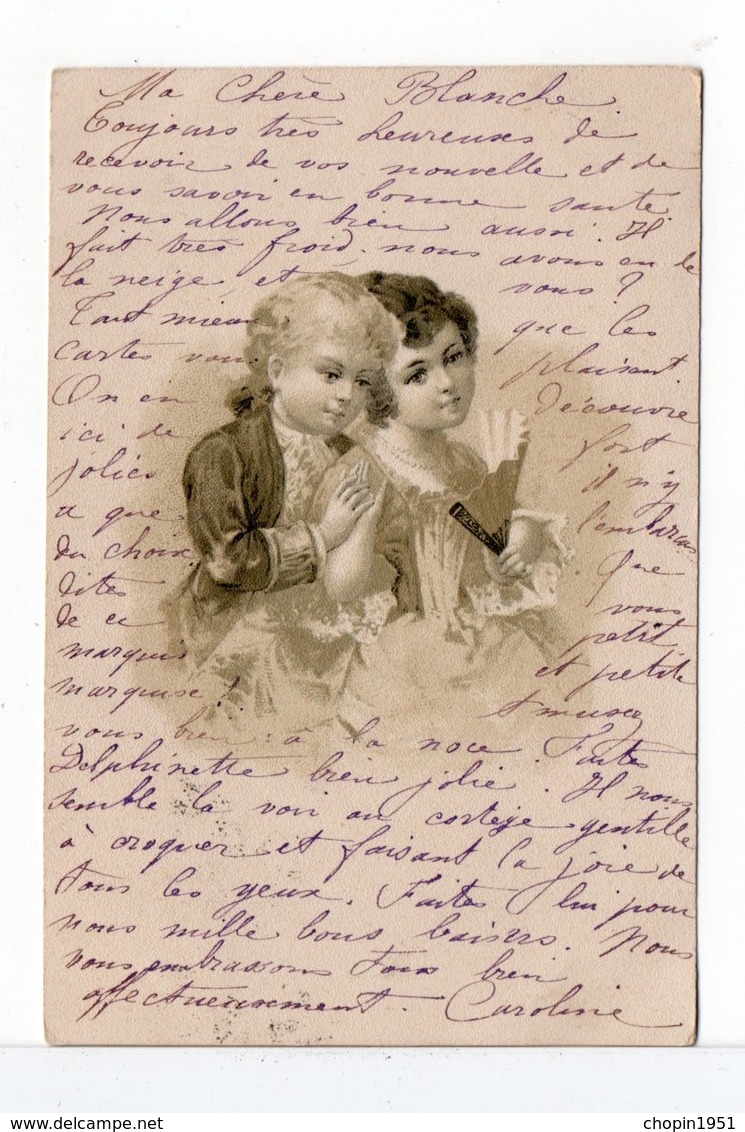 Ma Chère Blanche.
Toujours très heureuses de
recevoir de vos nouvelle et de
vous savoir en bonne santé.
Nous allons bien aussi. Il
fait très froid. nous avons eu de
la neige, et vous ?
Tant mieux que les
cartes vous plaisent.
On en découvre
ici de fort
jolies il n'y
a que l'embarras
du choix. Que
dites vous
de ce petit
marquis et petite
marquise ! Amusez
vous bien à la noce. Faites
Delphinette bien jolie. Il nous
semble la voir au cortège gentille
à croquer et faisant la joie de
tous les yeux. Faites lui pour
nous mille bons baisers. Nous
vous embrassons tous bien
affectueusement. Caroline
chopin1951